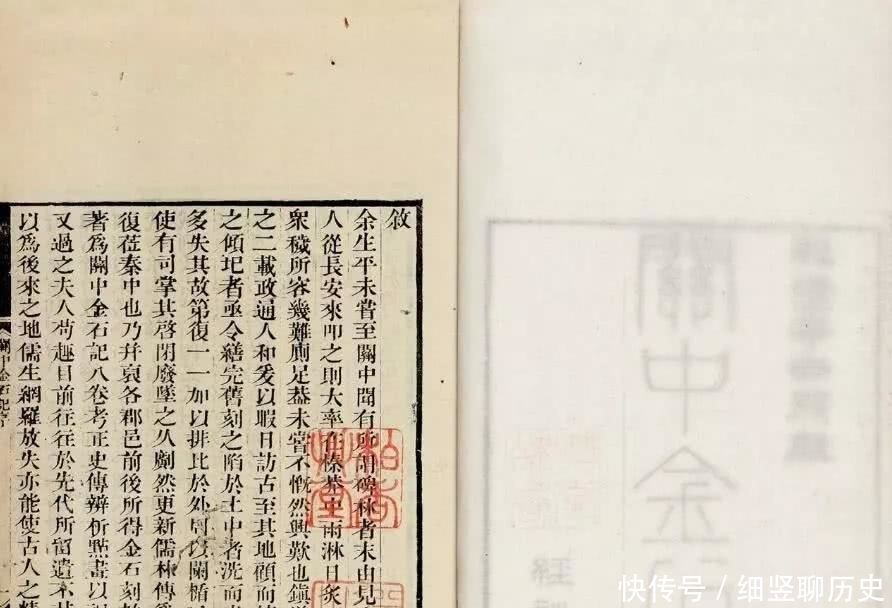 敘
余生平未嘗至關中聞有所謂碑林者末由見
人從長安來叩之則大率在榛莽中雨淋日炙
衆穢所容幾難廁足葢未嘗不慨然興歎也鎮
之二載政通人和爰以暇日訪古至其地顧而
之傾圮者亟令繕完舊刻之陷於土中者洗而
多失其故第復一一加以排比於外周以闌楯
使有司掌其啓閉廢墜之久劃然更新儒林傳
復莅秦中也乃幷裒各郡邑前後所得金石刻
著爲關中金石記八卷考正史傳辨析點畫以
又過之夫人苟趣目前往往於先代所留遺不
以爲後來之地儒生網羅放失亦能使古人之精
關中金石記序
關中金
經
快传号 / 细竖聊历史